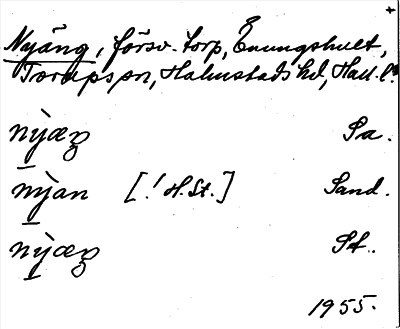 Nyäng, försv. torp, Enungshult,
Torups sn, Halmstads hd, Hall. l.
nỳæŋ Sa.
nỳan [! H.St.] Sand.
nỳæŋ St.
1955.